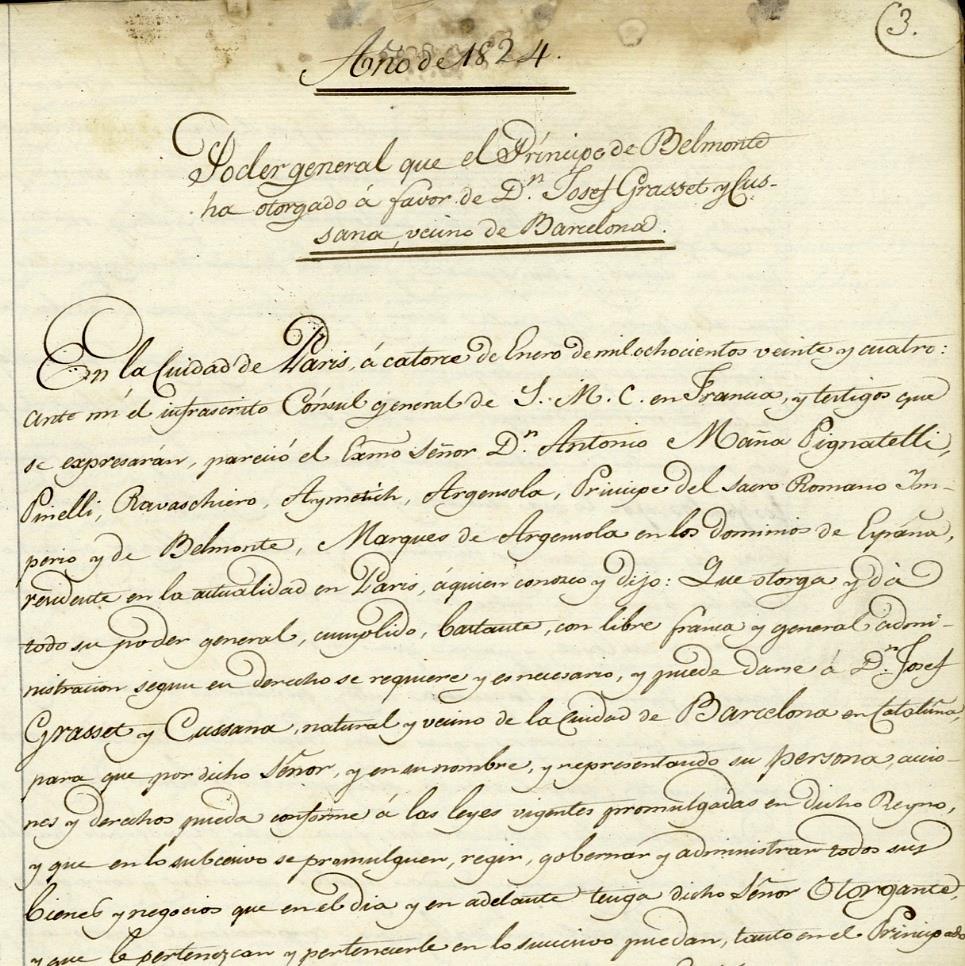 3.
Año de 1824.
Poder general que el Príncipe de Belmonte
ha otorgado á favor de D.n Josef Grasset y Cus-
sana, vecino de Barcelona.
En la Ciudad de Paris, á catorce de Enero de mil ochocientos veinte y cuatro:
ante mí el infrascrito Cónsul general de S. M. C. en Francia, y testigos que
se expresarán, pareció el Exmo Señor D.n Antonio Maria Pignatelli,
Pinelli, Ravaschiero, Aymerich, Argensola, Principe del Sacro Romano Im-
perio y de Belmonte, Marques de Argensola en los dominios de España,
residente en la actualidad en Paris, á quien conozco y dijo: Que otorga y dá
todo su poder general, cumplido, bastante, con libre franca y general admi-
nistracion segun en derecho se requiere y es necesario, y puede darse á D.n Josef
Grasset y Cussana, natural y vecino de la Ciudad de Barcelona en Cataluña,
para que por dicho Señor, y en su nombre, y representando su persona, accio-
nes y derechos pueda conforme á las leyes vigentes promulgadas en dicho Reyno,
y que en lo subcesivo se promulguen, regir, gobernar y administrar todos sus
bienes y negocios que en el dia y en adelante tenga dicho Señor Otorgante,
y que le pertenezcan y pertenecerle en lo succesivo puedan, tanto en el Principado